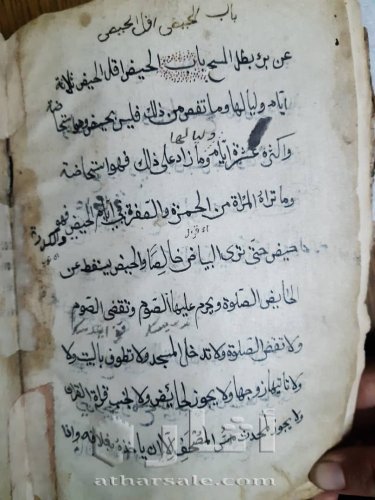 باب الحيض اقل الحيض
عن برء بطل المسح باب الحيض اقل الحيض ثلاثة
ايام ولياليها وما نقص من ذلك فليس بحيض وهو استحاضة
ولياليها
واكثره عشرة ايام وما زاد على ذلك فهو استحاضة
وما تراه المراة من الحمرة والصفرة والكدرة في ايام الحيض فهو
حيض حتى ترى البياض خالصا والحيض يسقط عن
الحائض الصلوة ويحرم عليها الصوم وتقضى الصوم
ولا تقضى الصلوة ولا تدخل المسجد ولا تطوف بالبيت ولا
ياتيها زوجها ولا يجوز لحائض ولا لجنب قراة القران
ولا يجوز لمحدث مس المصحف الا ان ياخذه بغلافه واذا
أثار
atharsale.com